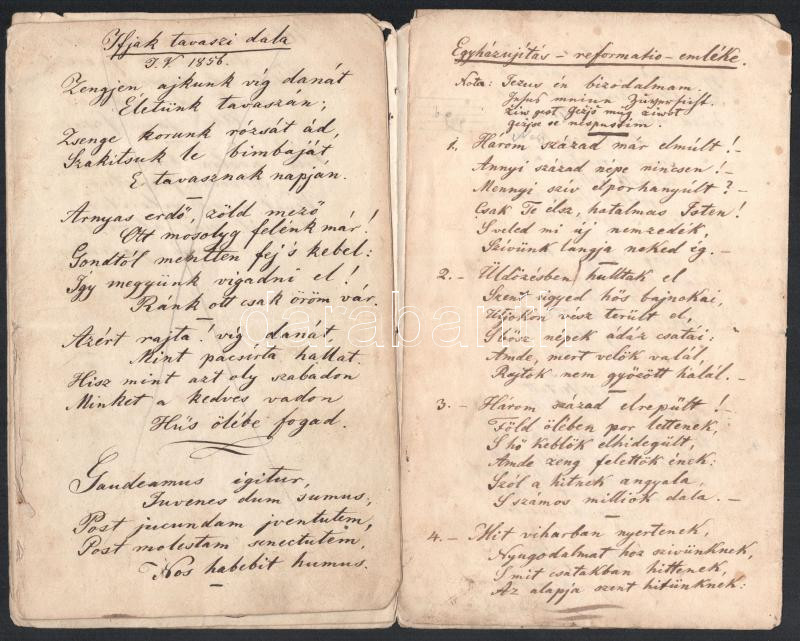 Ifjak tavaszi dala
T. V 1856.
Zengjen ajkunk vig danát
Életünk tavaszán;
Zsenge korunk rózsát ád,
Szakitsuk le bimbaját
E tavasznak napján.
Arnyas erdő, zöld mező
Ott mosolyg felénk már!
Gondtól mentten fej's kebel:
Így megyünk vigadni el!
Ránk ott csak öröm vár.
Azért rajta! vig danát,
Mint pacsirta hallat.
Hisz mint azt oly szabadon
Minket a kedves vadon
Hüs ölébe fogad.
Gaudeamus igitur,
Juvenes dum sumus;
Post jucundam jventutem,
Post molestam senectutem,
Nos habebit humus.
Egyházujítás - reformatio - emléke.
Nota: Jezus én bizodalmam.
Jesus meinn Zuversicht.
1. Három század már elmúlt! -
Annyi század népe nincsen! -
Mennyi sziv elporhanyúlt? -
Csak Te élsz, hatalmas Isten!
S veled mi új nemzedék,
Szivünk langja neked ég. -
2. - Üldözésben hulltak el
Szent ügyed hős bajnokai,
Hijokon vész terült el,
S hősz népek ádáz csatái;
Amde, mert velök valál,
Rajtok nem győzött halál. -
3. - Három század elrepült! -
Föld ölében por lettenek,
S hő keblök elhidegült,
Amde zeng felettök ének:
Szól a hitnek angyala,
S számos milliók dala. -
4. - Mit viharban nyertenek,
Nyugodalmat hoz szivünknek,
S mit csatakban hittenek,
Az alapja szent hitünknek:
darabanth